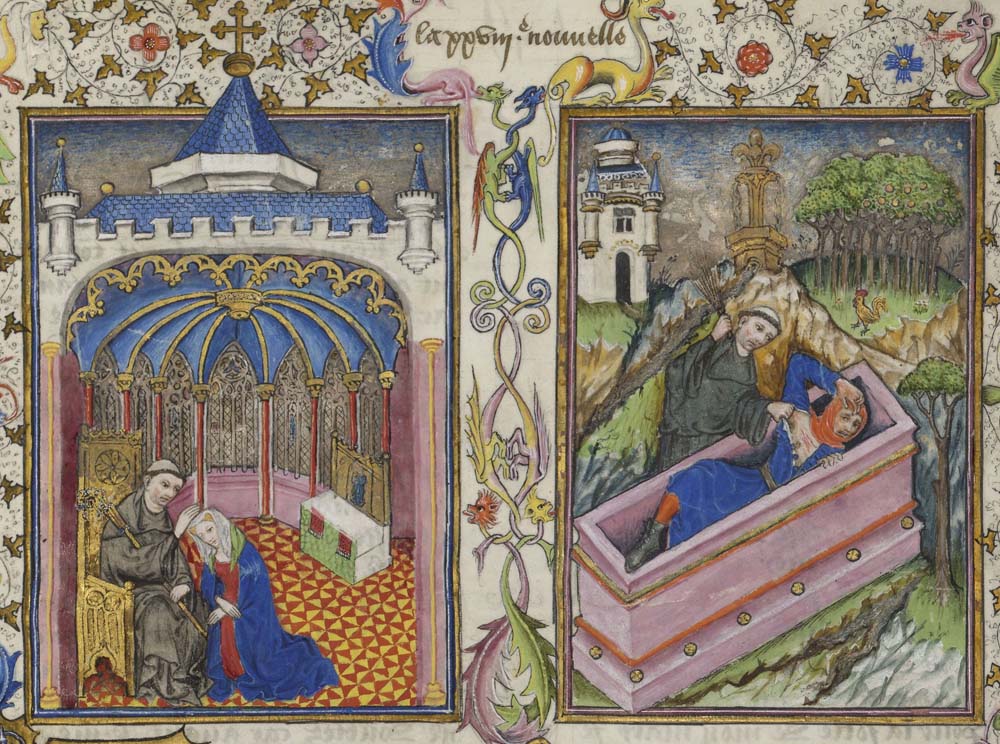 la xxviij.e nouuelle